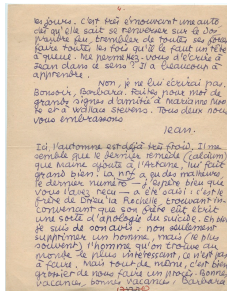 les jours. C'est très émouvant une auto
dès qu'elle sait se renverser sur le dos,
prendre feu, trembler de toutes ses forces
faire toutes les fois qu'il le faut un tête
à queue. Me permettez-vous d'écrire à
Jean dans ce sens? Il a beaucoup à
apprendre.
Non, je ne lui écrirai pas.
Bonsoir, Barbara. Faites pour moi de
grands signes d'amitié à Marianne Moo
re et à Wallace Stevens. Tous deux nous
vous embrassons
Jean.
Ici l'automne est déjà très froid. Il me
semble que le dernier remède (cadmium
que Maine ajoute à l'Arcane, lui fait
grand bien. La nrf a eu des malheurs
le dernier numéro — j'espère bien que
vous l'avez reçu — a été saisi : c'est le
frère de Drieu la Rochelle, trouvant in-
convenant que son frère eût écrit
une sorte d'apologie du suicide. En bien
je suis de son avis : non seulement
supprimer un homme, mais (le plus
souvent) l'homme qu'on trouve au
monde le plus intéressant, ce n'est pas
à faire. Mais tout de même, c'est bien
grossier de nous faire un procès. Bonnes
vacances, bonnes vacances, Barbara